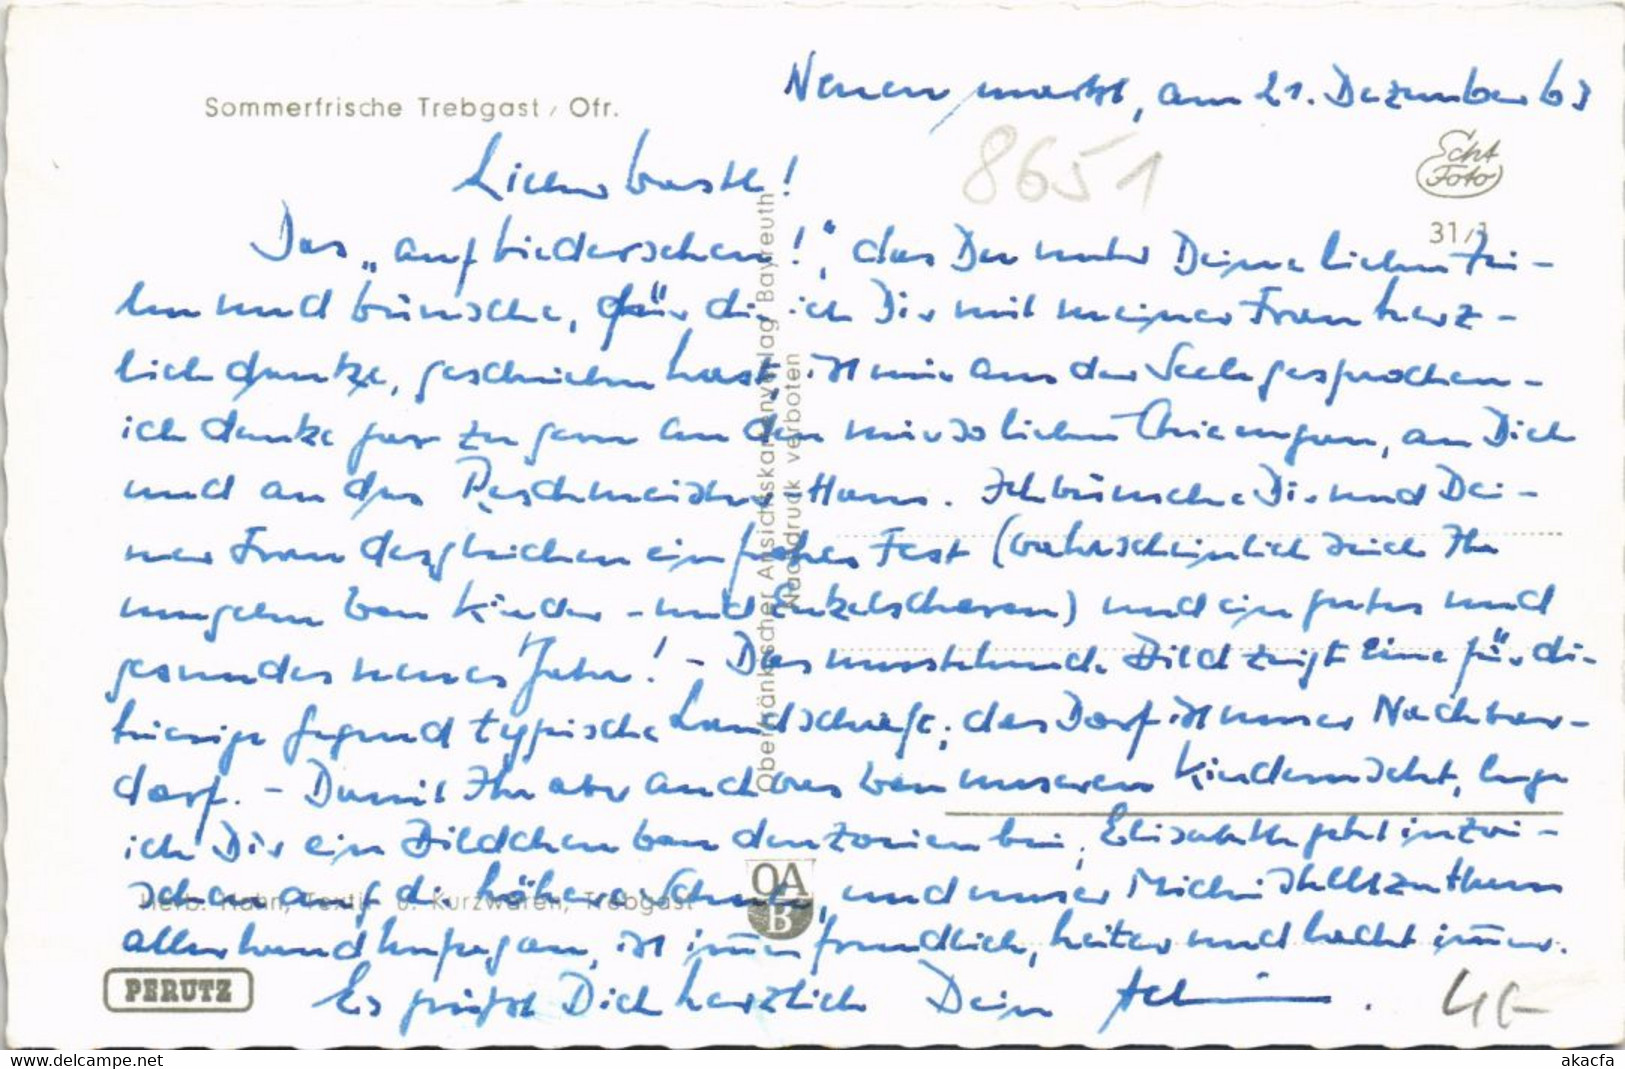 Sommerfrische Trebgast / Ofr.
Neuenmarkt, am 21. Dezember 63
8651
Echt
Foto
31/1
Lieber
Das „auf Wiedersehen!", das Du unter Deine lieben Zei-
len und Wünsche, für die ich Dir mit meiner Frau herz-
lich danke, geschrieben hast, ist mir aus der Seele gesprochen -
ich denke gar zu gern an den mir so lieben Chiemgau, an Dich
und an das Hans. Ich wünsche Dir und Dei-
ner Frau desgleichen ein frohes Fest (wahrscheinlich seid Ihr
umgeben von Kinder- und Enkelscharen) und ein gutes und
gesundes neues Jahr! - Das Bild zeigt eine für die
hiesige Gegend typische Landschaft; das Dorf ist unser Nachbar-
dorf. - Damit Ihr aber auch was von unseren Kindern seht, lege
ich Dir ein Bildchen von den bei; Elisabeth geht inzwi-
schen auf die höhere Schule, und unser Michi stellt zu Haus
allerhand an, ist immer freundlich, heiter und lacht immer.
Es grüßt Dich herzlich Dein
Oberfränkischer Ansichtskartenverlag Bayreuth
Nachdruck verboten
Herb. Hahn, Textil- u. Kurzwaren, Trebgast
OA
B
PERUTZ
www.delcampe.net
akacfa